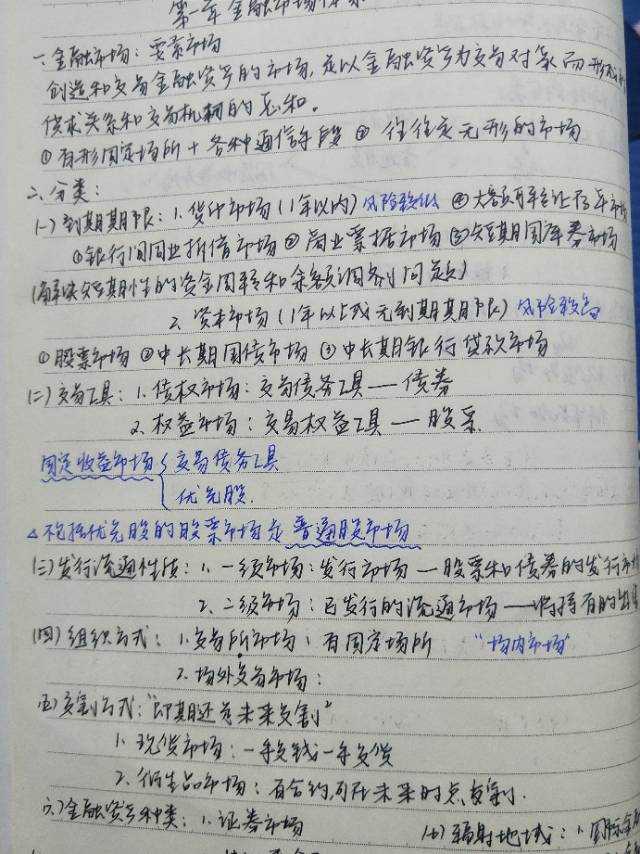 第一章 金融市场体系
一、金融市场：要素市场
创造和交易金融资产的市场，是以金融资产为交易对象而形成的
供求关系和交易机制的总和。
①有形固定场所＋各种通信手段 ② 往往是无形的市场
二、分类：
(一) 到期期限：1. 货币市场（1年以内）风险较低 ④大额可转让存单市场
①银行间同业拆借市场 ②商业票据市场 ③短期国库券市场
（解决短期性的资金周转和余额调剂问题）
2. 资本市场（1年以上或无到期期限）风险较高
①股票市场 ②中长期国债市场 ③中长期银行贷款市场
(二) 交易工具：1. 债权市场：交易债务工具——债券
2. 权益市场：交易权益工具——股票
固定收益市场 { 交易债务工具
优先股.
△ 不包括优先股的股票市场是 普通股市场
(三) 发行流通性质：1. 一级市场：发行市场—股票和债券的发行市场
2. 二级市场：已发行的流通市场——将持有的
(四) 组织方式：1. 交易所市场：有固定场所 “场内市场”
2. 场外交易市场：
(五) 交割方式：“即期还是未来交割”
1. 现货市场：一手交钱一手交货
2. 衍生品市场：百合约,可在未来时点交割.
(六) 金融资产种类：1. 证券市场 (七) 辐射地域：1. 国际金